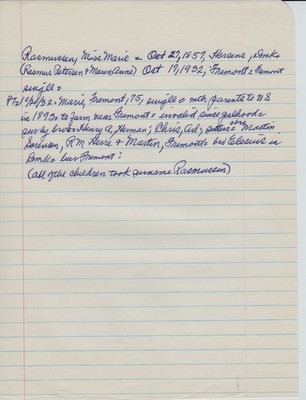 Rasmussen, Miss Marie = Oct 27, 1857, Horsens, Dmk =
Rasmus Petersen & Maren Anne) Oct 17, 1932, Fremont = Fremont
single =
10/20/32 = Marie, Fremont, 75, single = mth parents to US
in 1893 = to farm near Fremont = invalid since girlhood =
surv by bros = Henry A, Herman, Chris, Art, sisters = Martin
Sorensen, R M Herre & Martin, Fremont = bro Elesius in
Dmk = bur Fremont =
(all of the children took surname Rasmussen)